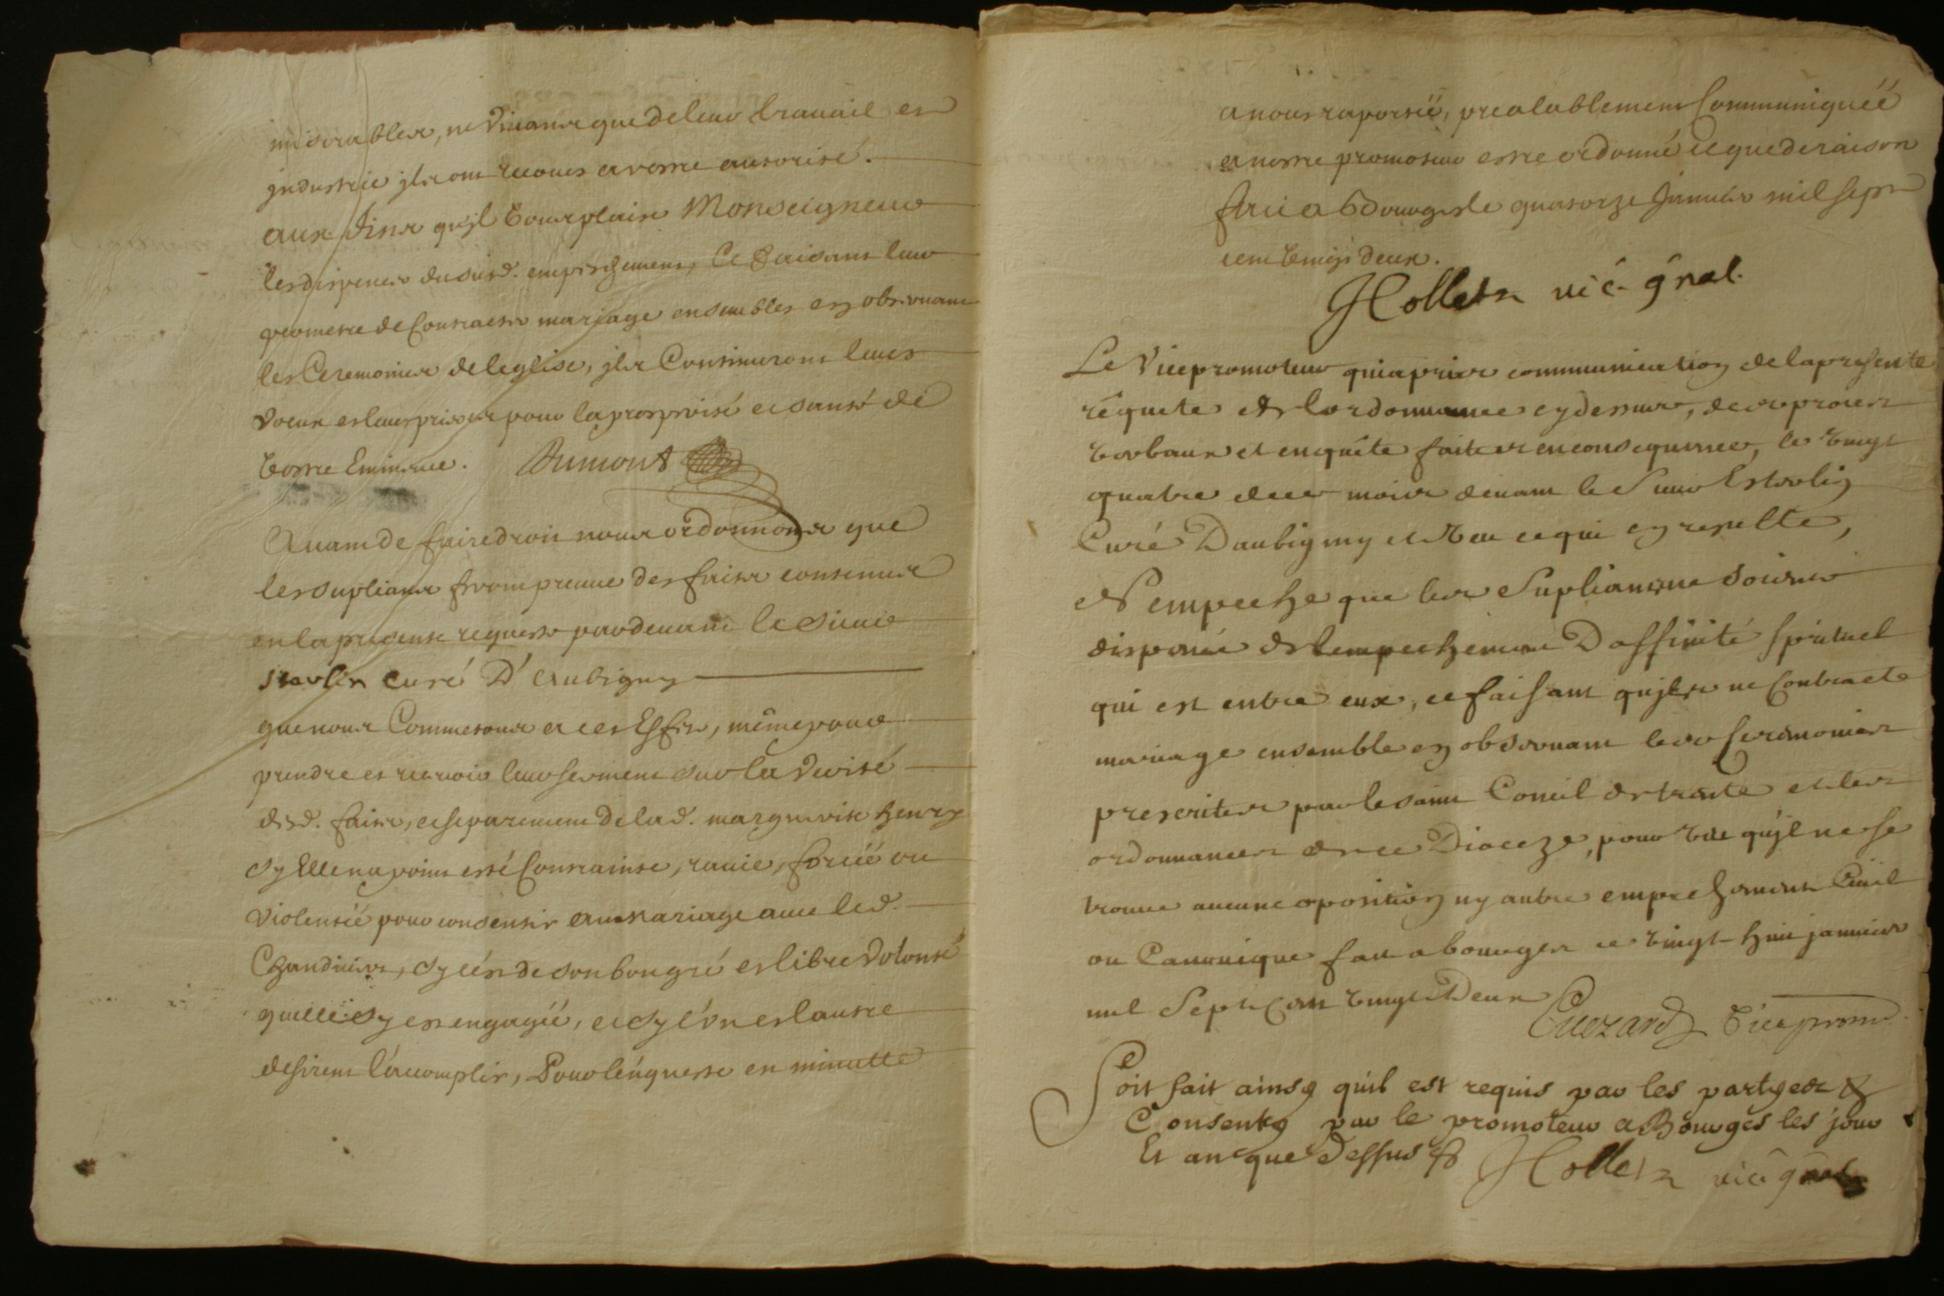 miserables, ne vivans que de leur travail et
industrie ils ont recours a vostre autorité.
aux fins qu'il vous plaise Monseigneur
les dispenser dudit empeschement, Ce faisant leur
permettre de Contracter mariage ensembles en observant
les Ceremonies de leglise, ils Continueront leurs
voeux et leurs prieres pour la prosperité et santé de
vostre Eminence. Dumont
Avant de faire droit nous ordonnons que
les supliants feront preuve des faits contenus
en la presente requeste pardevant le Sieur
curé D'aubigny
que nous Commetons a ces Effets, même pour
prendre et recevoir leur serment sur la verité
desd. faits, et separement de lad. marguerite henry
sy Elle na point esté Contrainte, ravie, forcée ou
violentée pour consentir au mariage avec led.
sy c'est de son bon gré et libre volonté
quelle sy est engagée, et sy l'un et lautre
desirent l'acomplir, Pour l'enqueste en minutte
a nous raportée, prealablement Communiquée
a nostre promoteur estre ordonné ce que de raison
fait a Bourges le quatorze Janvier mil sept
cent vingt deux.
Hollet vic. gnal.
Le Vicepromoteur qui a pris communication de la presente
requete de lordonnance cy dessus, des proces
verbaux et enquête faites en consequence, le vingt
quatre de ce mois devant le Sieur
Curé Daubigny et Veu ce qui en resulte,
N'empeche que les Supliants ne soient
dispensé de lempechement Daffinité spirituel
qui est entre eux, ce faisant qu'ils ne Contracte
mariage ensemble en observant les seremonies
prescrites par le saint Concil de trante et les
ordonnances de ce Dioceze, pour vue qu'il ne se
trouve aucune oposition ny autre empechement Civil
ou Canonique fait a bourges ce vingt-huit janvier
mil Sept Cent vingt Deux
Vice prom.
Soit fait ainsy quil est requis par les partyes &
Consenty par le promoteur a Bourges les jour
Et an que Dessus
Hollet vic. gnal.